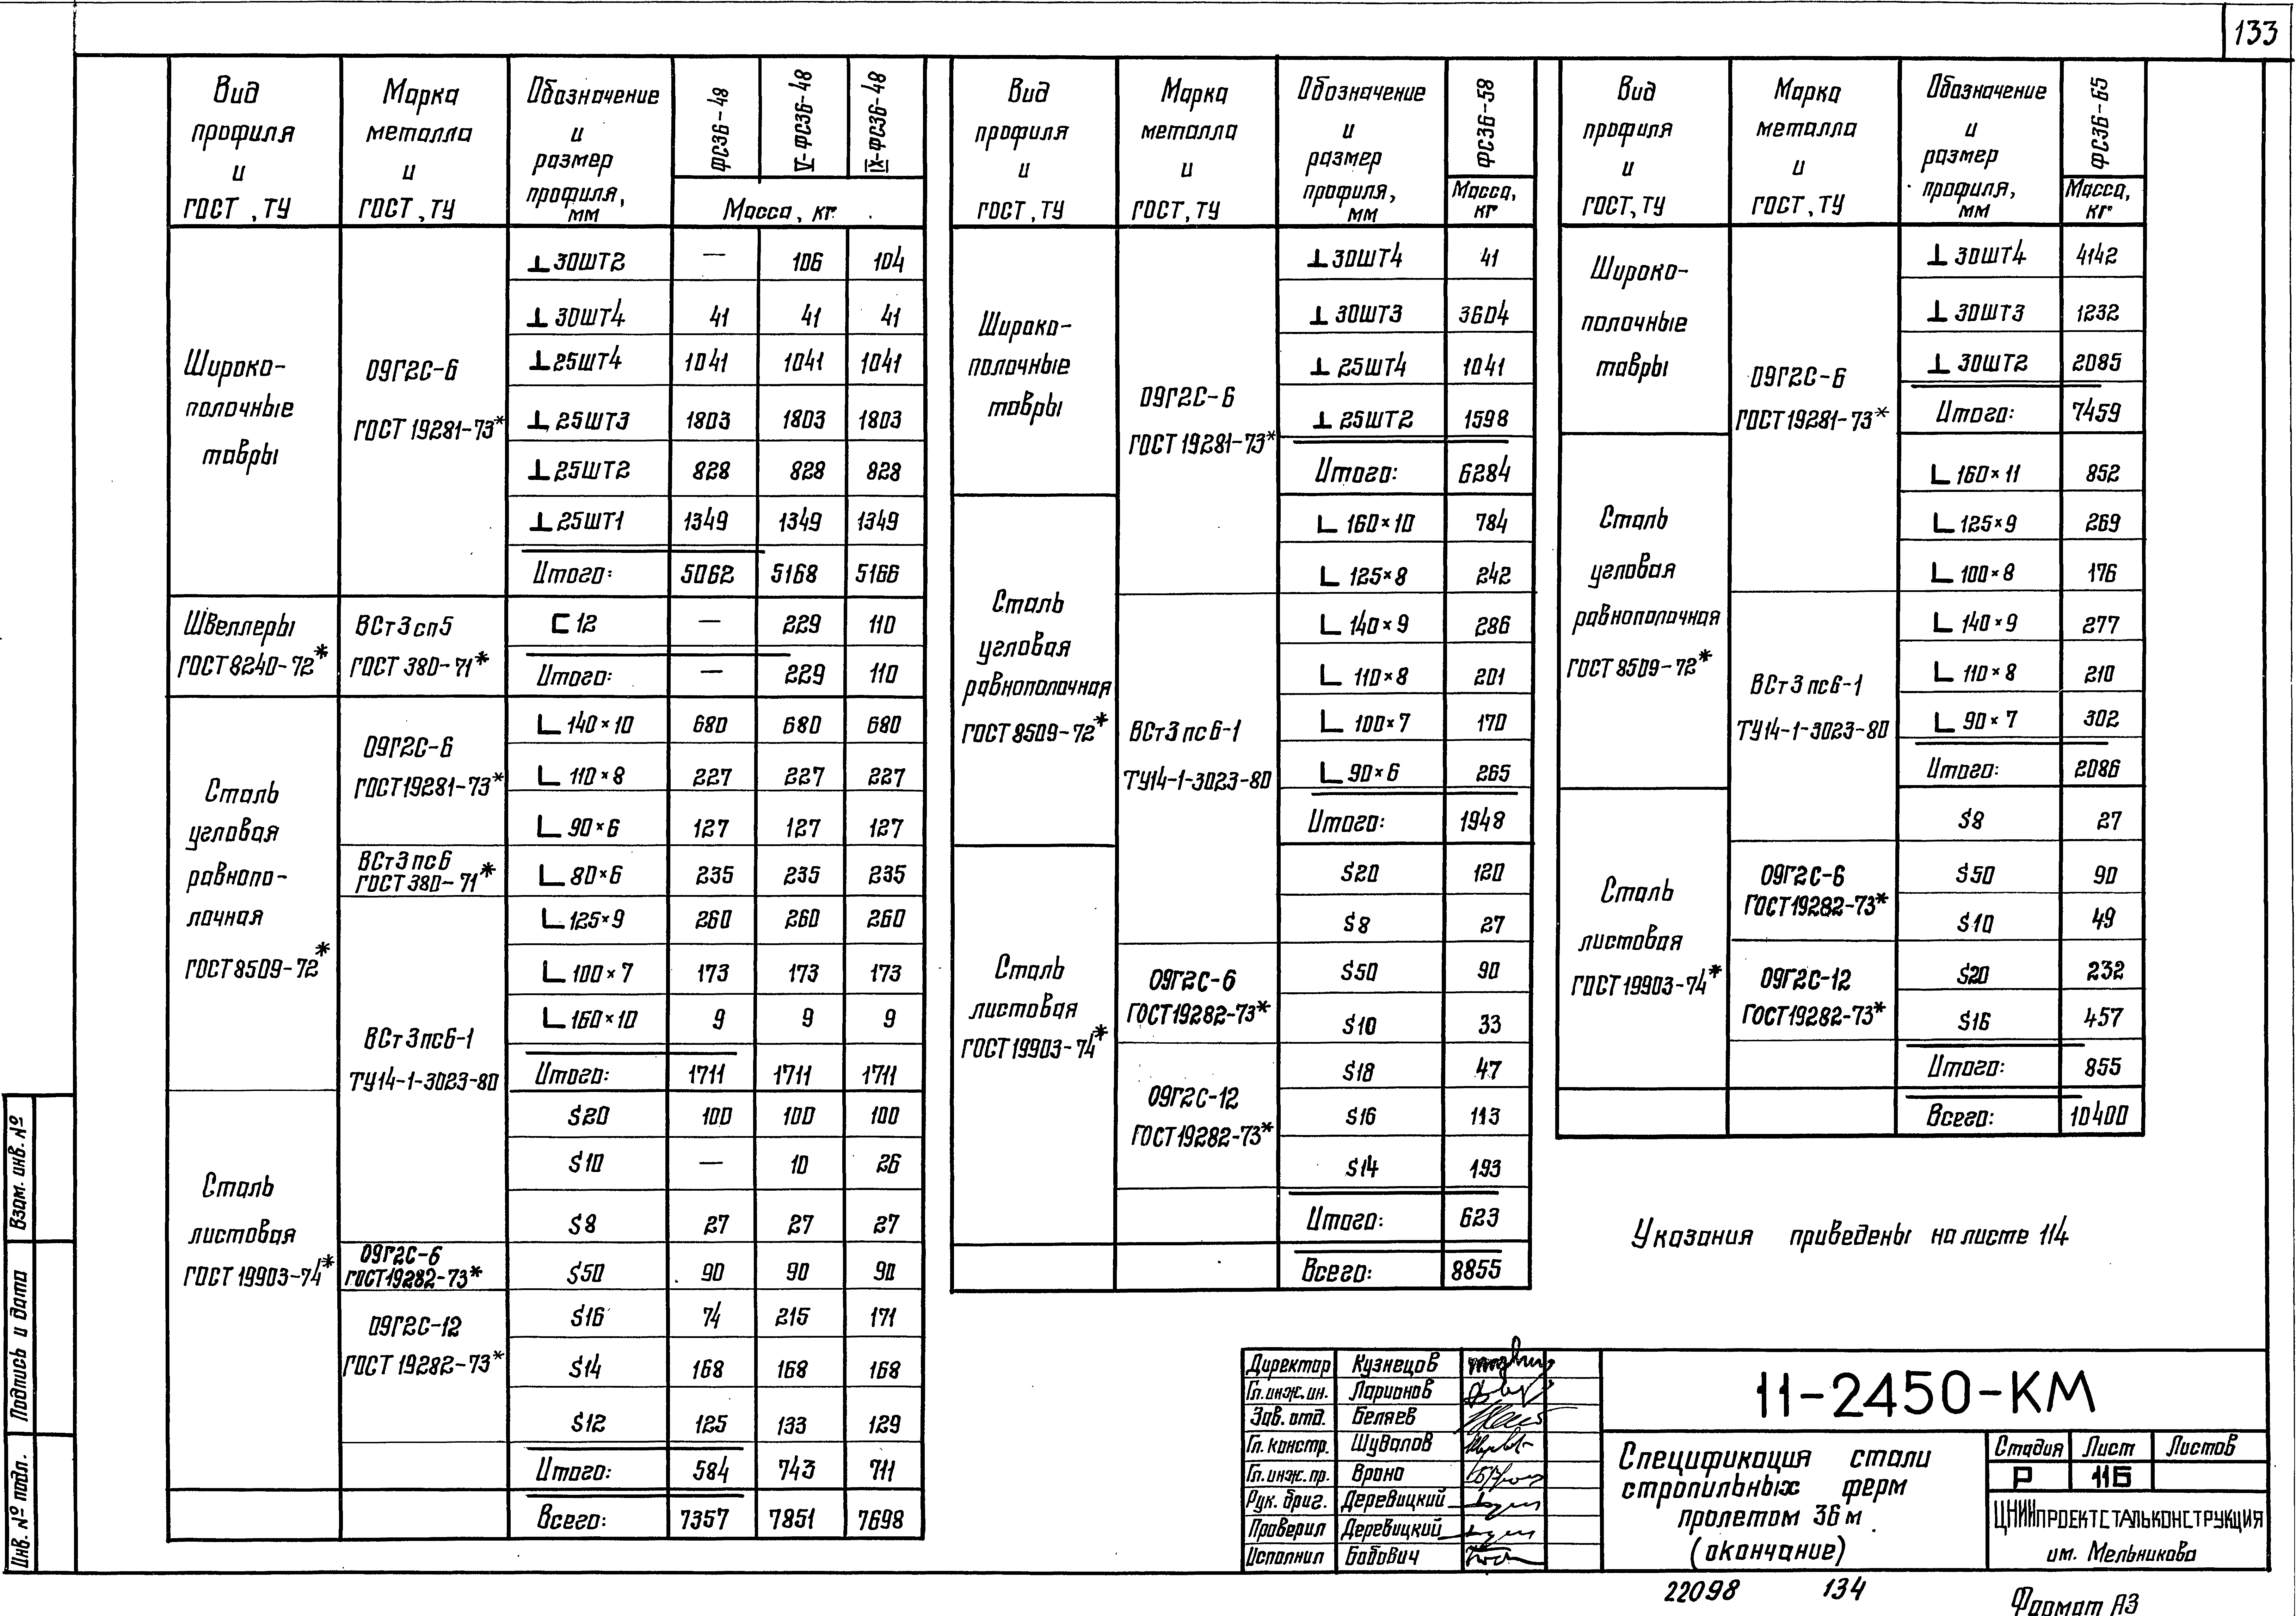 133
Вид профиля и ГОСТ, ТУ
Марка металла и ГОСТ, ТУ
Обозначение и размер профиля, мм
ФС36-48
V-ФС36-48
IX-ФС36-48
Масса, кг
Широко-
полочные
тавры
09Г2С-6
ГОСТ 19281-73*
⊥ 30ШТ2 — 106 104
⊥ 30ШТ4 41 41 41
⊥ 25ШТ4 1041 1041 1041
⊥ 25ШТ3 1803 1803 1803
⊥ 25ШТ2 828 828 828
⊥ 25ШТ1 1349 1349 1349
Итого: 5062 5168 5166
Швеллеры
ГОСТ 8240-72*
ВСт3сп5
ГОСТ 380-71*
⊏ 12 — 229 110
Итого: — 229 110
Сталь
угловая
равнопо-
лочная
ГОСТ 8509-72*
09Г2С-6
ГОСТ 19281-73*
∟ 140×10 680 680 680
∟ 110×8 227 227 227
∟ 90×6 127 127 127
ВСт3пс6
ГОСТ 380-71*
∟ 80×6 235 235 235
ВСт3пс6-1
ТУ14-1-3023-80
∟ 125×9 260 260 260
∟ 100×7 173 173 173
∟ 160×10 9 9 9
Итого: 1711 1711 1711
Сталь
листовая
ГОСТ 19903-74*
S20 100 100 100
S10 — 10 26
S8 27 27 27
09Г2С-6
ГОСТ 19282-73*
S50 90 90 90
09Г2С-12
ГОСТ 19282-73*
S16 74 215 171
S14 168 168 168
S12 125 133 129
Итого: 584 743 711
Всего: 7357 7851 7698
Вид профиля и ГОСТ, ТУ
Марка металла и ГОСТ, ТУ
Обозначение и размер профиля, мм
ФС36-58
Масса, кг
Широко-
полочные
тавры
09Г2С-6
ГОСТ 19281-73*
⊥ 30ШТ4 41
⊥ 30ШТ3 3604
⊥ 25ШТ4 1041
⊥ 25ШТ2 1598
Итого: 6284
Сталь
угловая
равнополочная
ГОСТ 8509-72*
∟ 160×10 784
∟ 125×8 242
ВСт3пс6-1
ТУ14-1-3023-80
∟ 140×9 286
∟ 110×8 201
∟ 100×7 170
∟ 90×6 265
Итого: 1948
Сталь
листовая
ГОСТ 19903-74*
S20 120
S8 27
09Г2С-6
ГОСТ 19282-73*
S50 90
S10 33
09Г2С-12
ГОСТ 19282-73*
S18 47
S16 113
S14 193
Итого: 623
Всего: 8855
Вид профиля и ГОСТ, ТУ
Марка металла и ГОСТ, ТУ
Обозначение и размер профиля, мм
ФС36-65
Масса, кг
Широко-
полочные
тавры
09Г2С-6
ГОСТ 19281-73*
⊥ 30ШТ4 4142
⊥ 30ШТ3 1232
⊥ 30ШТ2 2085
Итого: 7459
Сталь
угловая
равнополочная
ГОСТ 8509-72*
∟ 160×11 852
∟ 125×9 269
∟ 100×8 176
ВСт3пс6-1
ТУ14-1-3023-80
∟ 140×9 277
∟ 110×8 210
∟ 90×7 302
Итого: 2086
Сталь
листовая
ГОСТ 19903-74*
S8 27
09Г2С-6
ГОСТ 19282-73*
S50 90
S10 49
09Г2С-12
ГОСТ 19282-73*
S20 232
S16 457
Итого: 855
Всего: 10400
Указания приведены на листе 114
Взам. инв. №
Подпись и дата
Инв. № подл.
Директор Кузнецов
Гл. инж. ин. Ларионов
Зав. отд. Беляев
Гл. констр. Шувалов
Гл. инж. пр. Врона
Рук. бриг. Деревицкий
Проверил Деревицкий
Исполнил Бабович
11-2450-КМ
Спецификация стали
стропильных ферм
пролетом 36 м
(окончание)
Стадия Лист Листов
Р 116
ЦНИИПРОЕКТСТАЛЬКОНСТРУКЦИЯ
им. Мельникова
22098 134
Формат А3